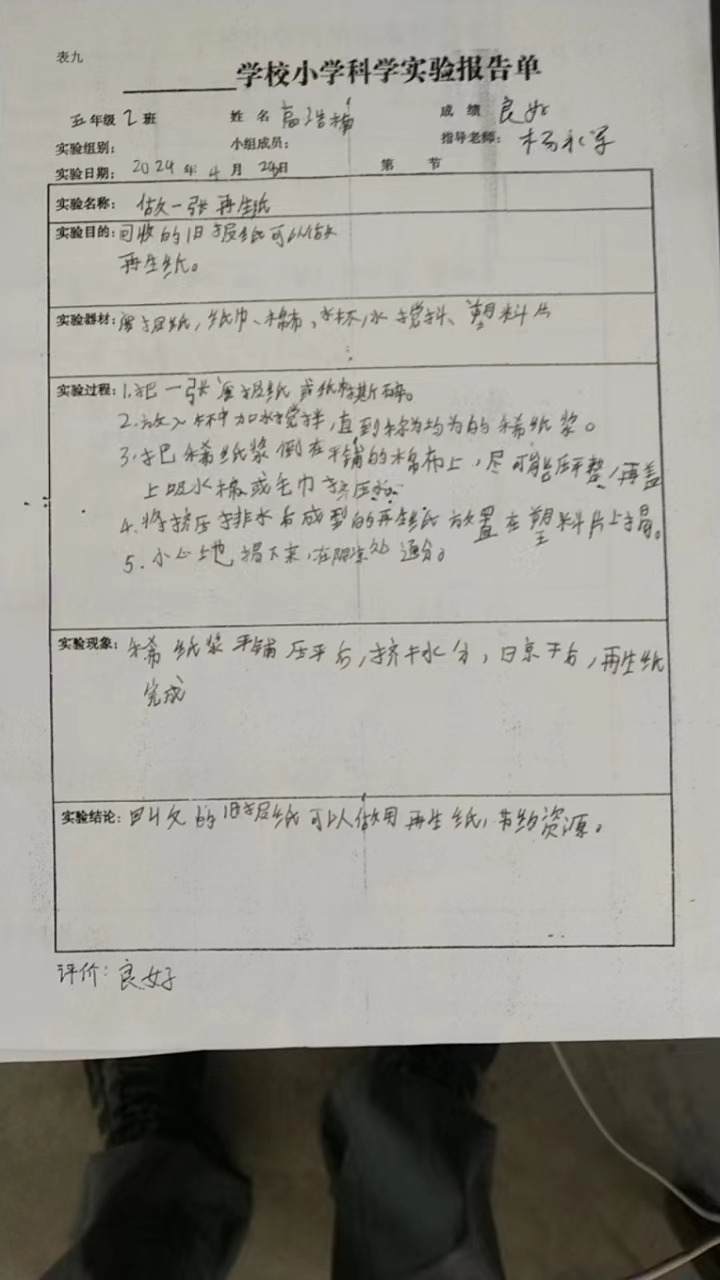 表九
学校小学科学实验报告单
五年级 2 班 姓 名 高浩楠 成 绩 良好
实验组别: 小组成员: 指导老师: 杨永军
实验日期: 2024 年 4 月 29日 第 节
实验名称: 做一张再生纸
实验目的: 回收的旧报纸可以做
再生纸。
实验器材: 废报纸, 纸巾、棉布、水杯, 水 搅拌、塑料片
实验过程: 1. 把一张废报纸或纸 撕碎。
2. 放入杯中加水搅拌, 直到称为均为的稀纸浆。
3. 把稀纸浆倒在平铺的棉布上, 尽可能压平整, 再盖
上吸水棉或毛巾挤压
4. 将挤压排水后成型的再生纸放置在塑料片上
5. 小心地揭下来, 在阴凉处通
实验现象: 稀纸浆平铺压平后, 挤干水分, 晾干后, 再生纸
完成
实验结论: 回收的旧报纸可以做用再生纸, 节约资源。
评价: 良好